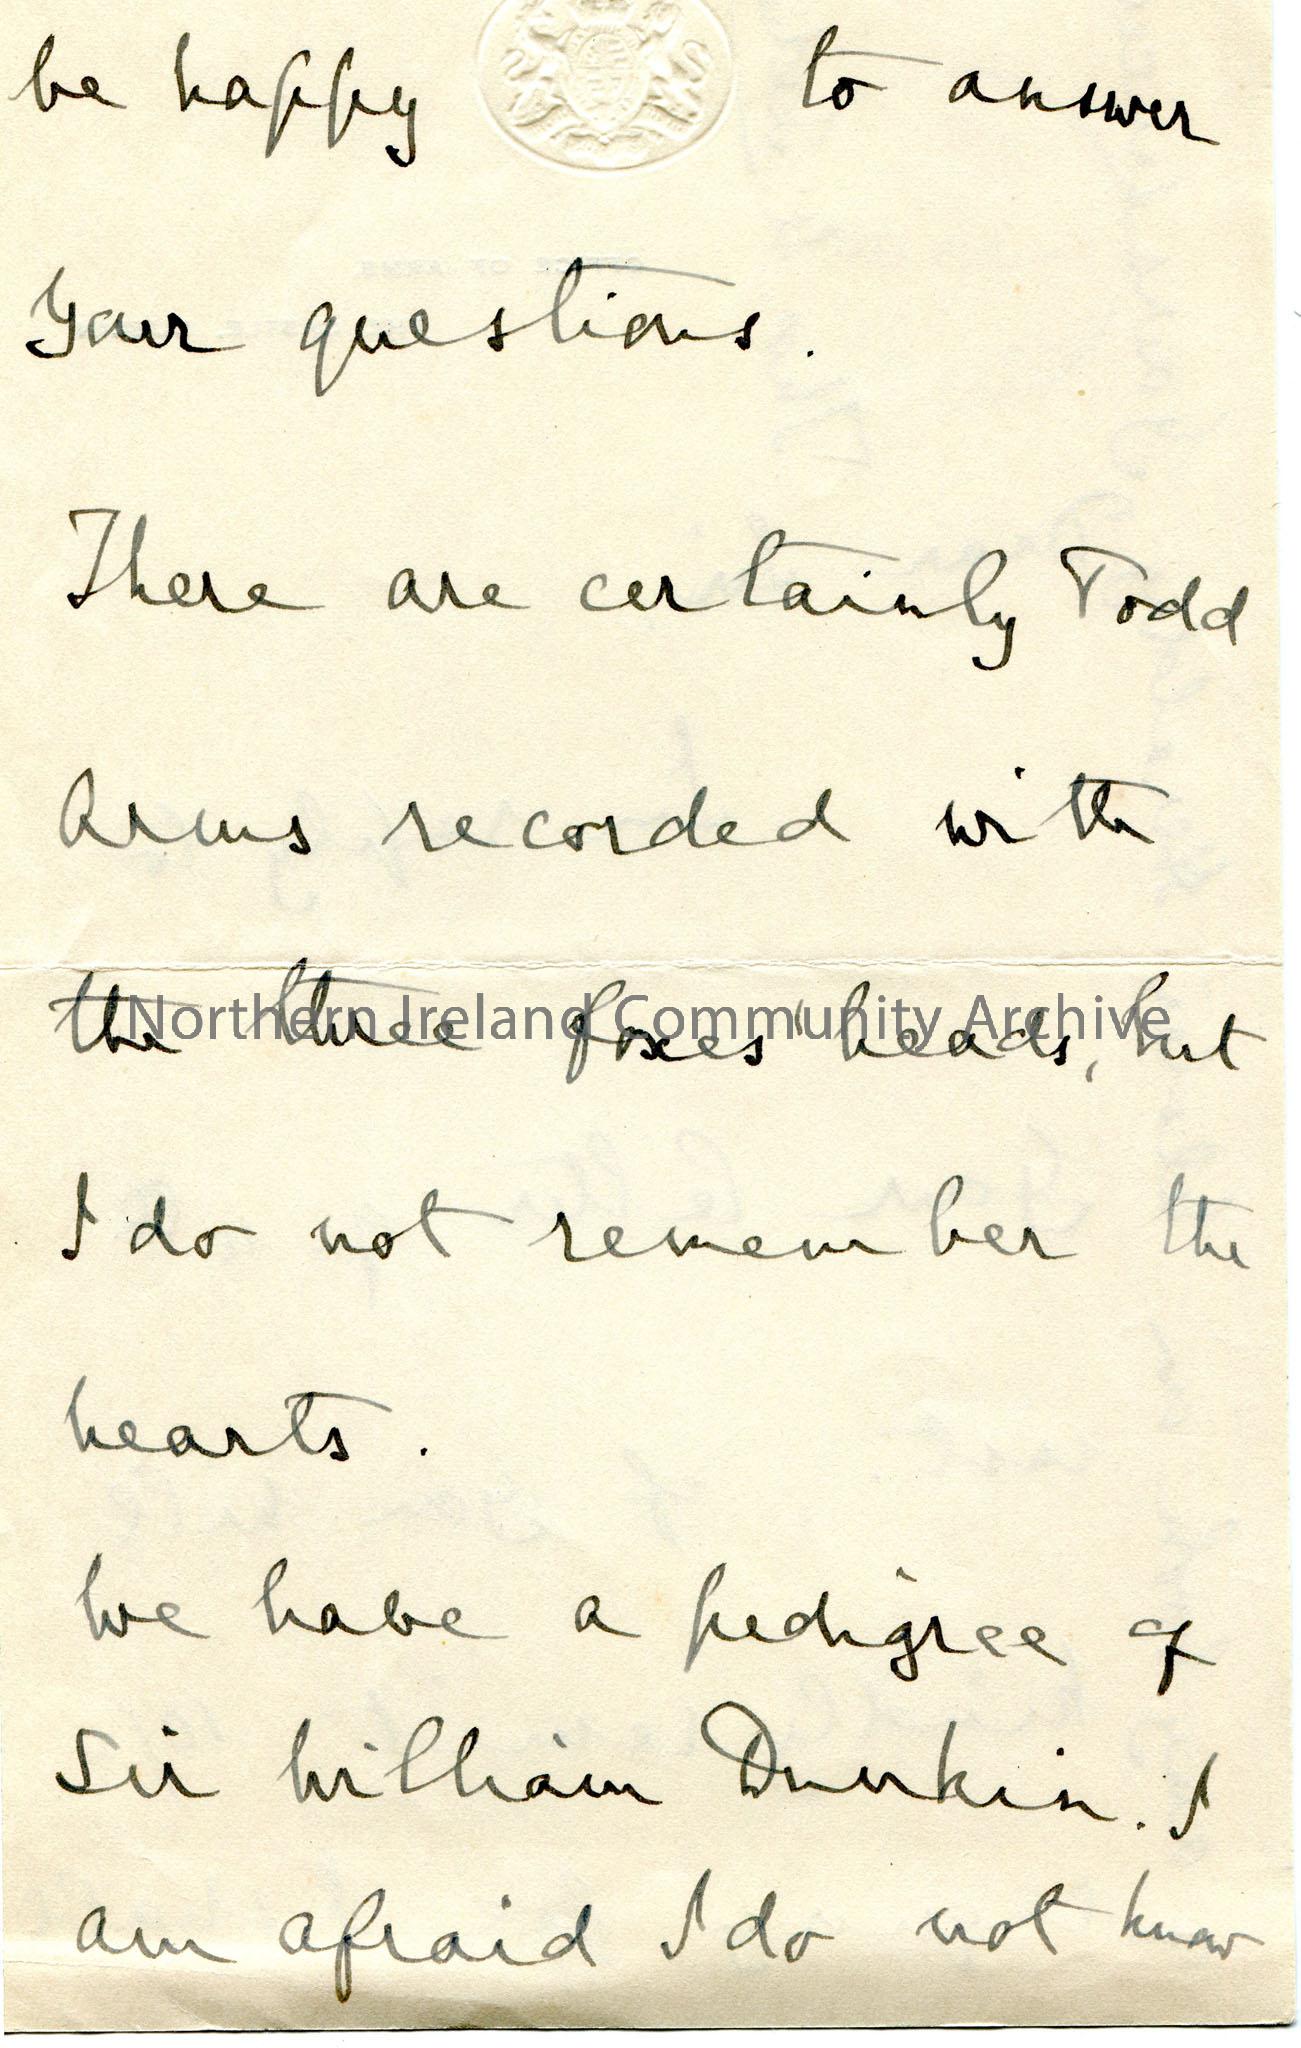 be happy to answer
your questions.
There are certainly Todd
Arms recorded with
the three foxes' heads, but
Northern Ireland Community Archive
I do not remember the
hearts.
We have a pedigree of
Sir William Dunkin. I
am afraid I do not know